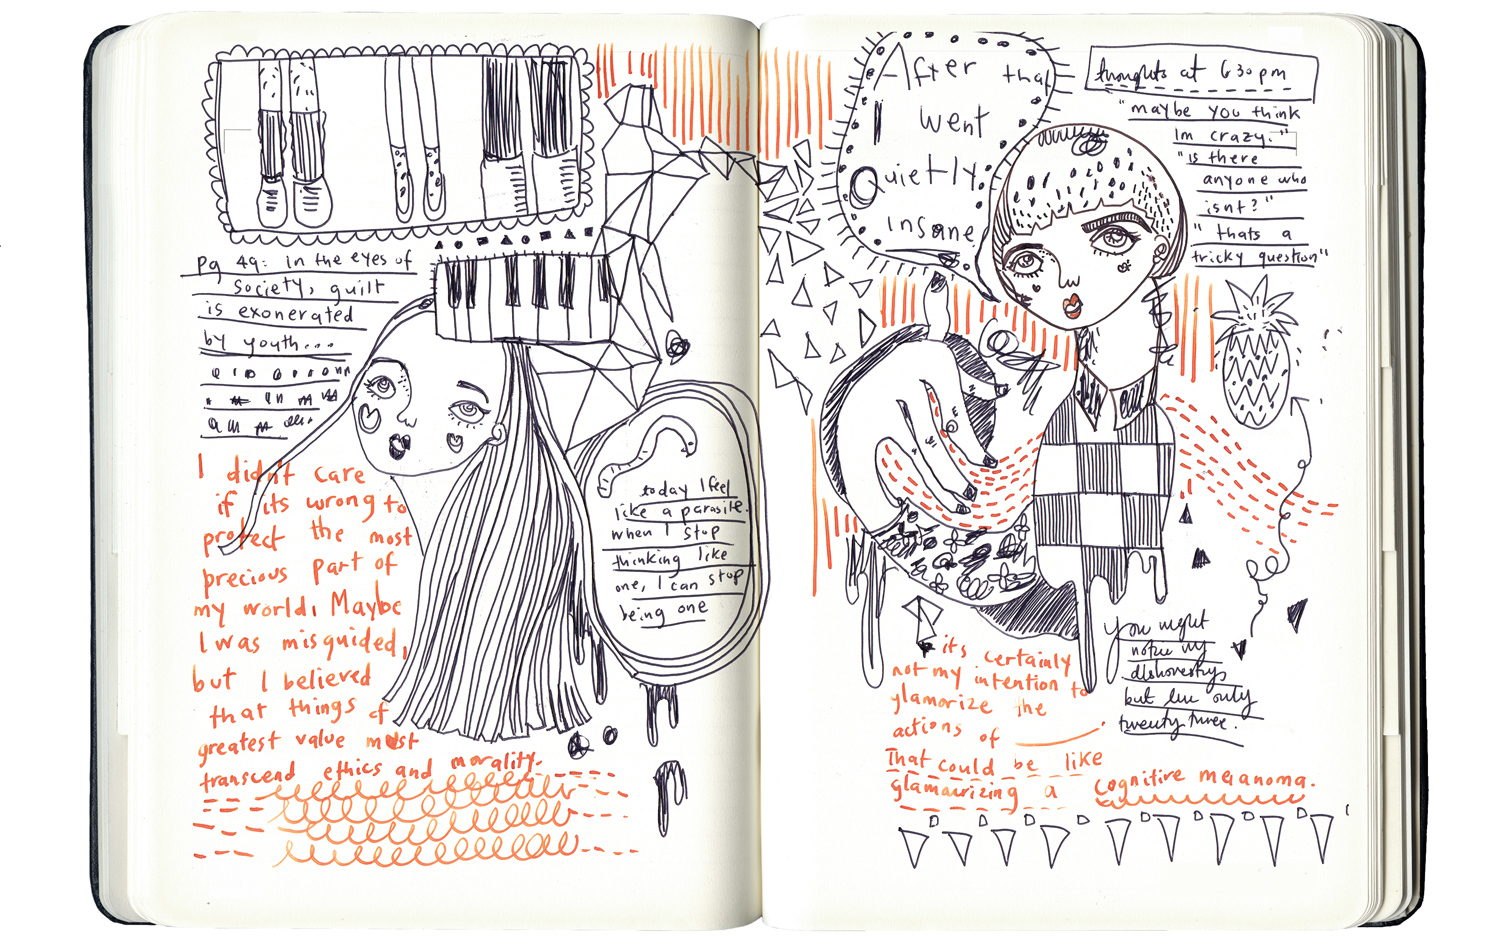 pg 49: in the eyes of
society, guilt
is exonerated
by youth...
I didn't care
if its wrong to
protect the most
precious part of
my world, Maybe
I was misguided,
but I believed
that things of
greatest value must
transcend ethics and morality.
today I feel
like a parasite.
when I stop
thinking like
one, I can stop
being one
After that
I went
Quietly
insane
thoughts at 630pm
"maybe you think
Im crazy.."
"is there
anyone who
isnt?"
"thats a
tricky question"
You might
notice my
dishonesty
but Im only
twenty three.
its certainly
not my intention to
glamorize the
actions of
That could be like
glamourizing a cognitive melanoma.